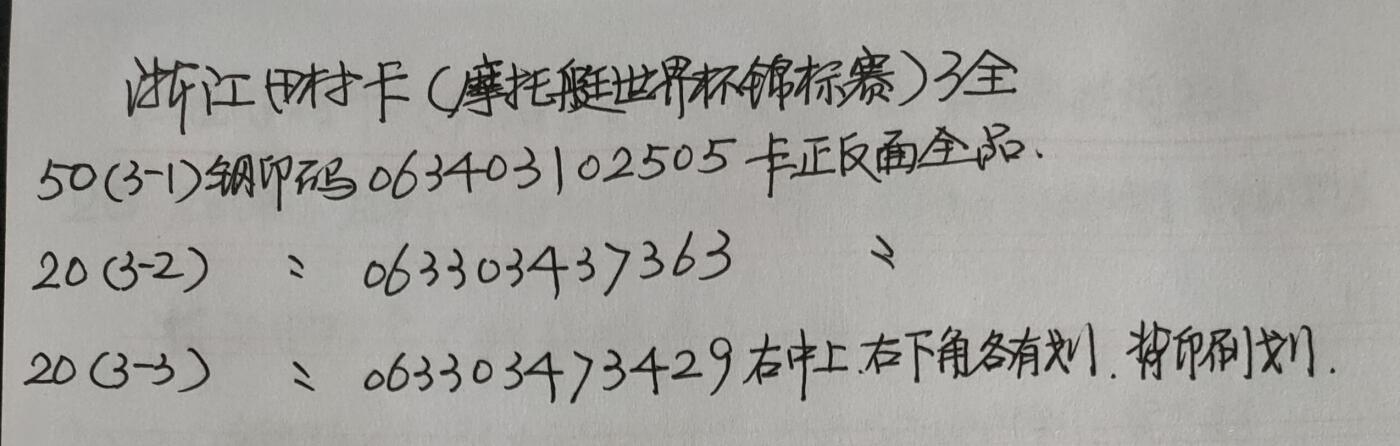 浙江田村卡(摩托艇世界杯锦标赛)3全
50(3-1)钢印码063403102505卡正反面全品.
20(3-2) 〃 063303437363 〃
20(3-3) 〃 063303473429右中上.右下角各有划.背印刷划.